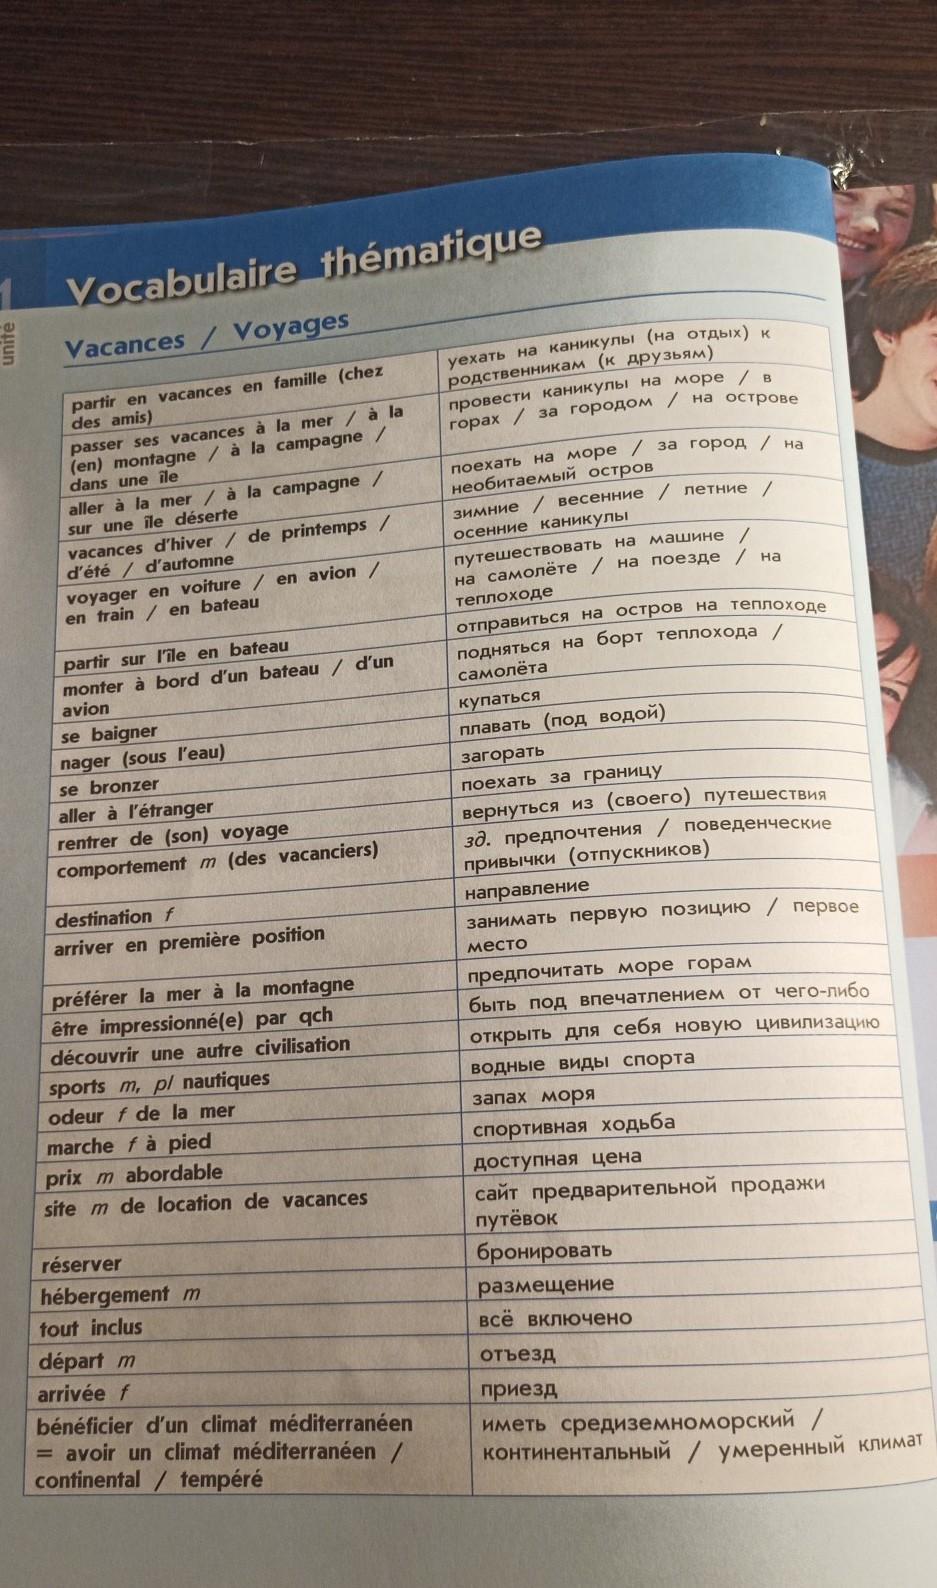 1
unité
Vocabulaire thématique
Vacances / Voyages
partir en vacances en famille (chez
des amis)
уехать на каникулы (на отдых) к
родственникам (к друзьям)
passer ses vacances à la mer / à la
(en) montagne / à la campagne /
dans une île
провести каникулы на море / в
горах / за городом / на острове
aller à la mer / à la campagne /
sur une île déserte
поехать на море / за город / на
необитаемый остров
vacances d'hiver / de printemps /
d'été / d'automne
зимние / весенние / летние /
осенние каникулы
voyager en voiture / en avion /
en train / en bateau
путешествовать на машине /
на самолёте / на поезде / на
теплоходе
partir sur l'île en bateau
отправиться на остров на теплоходе
monter à bord d'un bateau / d'un
avion
подняться на борт теплохода /
самолёта
se baigner
купаться
nager (sous l'eau)
плавать (под водой)
se bronzer
загорать
aller à l'étranger
поехать за границу
rentrer de (son) voyage
вернуться из (своего) путешествия
comportement m (des vacanciers)
зд. предпочтения / поведенческие
привычки (отпускников)
destination f
направление
arriver en première position
занимать первую позицию / первое
место
préférer la mer à la montagne
предпочитать море горам
être impressionné(e) par qch
быть под впечатлением от чего-либо
découvrir une autre civilisation
открыть для себя новую цивилизацию
sports m, pl nautiques
водные виды спорта
odeur f de la mer
запах моря
marche f à pied
спортивная ходьба
prix m abordable
доступная цена
site m de location de vacances
сайт предварительной продажи
путёвок
réserver
бронировать
hébergement m
размещение
tout inclus
всё включено
départ m
отъезд
arrivée f
приезд
bénéficier d'un climat méditerranéen
= avoir un climat méditerranéen /
continental / tempéré
иметь средиземноморский /
континентальный / умеренный климат